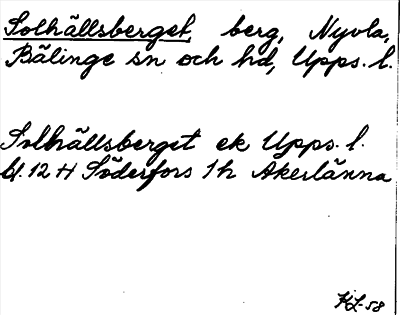 Solhällsberget, berg, Nyvla,
Bälinge sn och hd, Upps. l.
Solhällsberget ek Upps. l.
bl. 12 H Söderfors 1 h Åkerlänna
HL-58